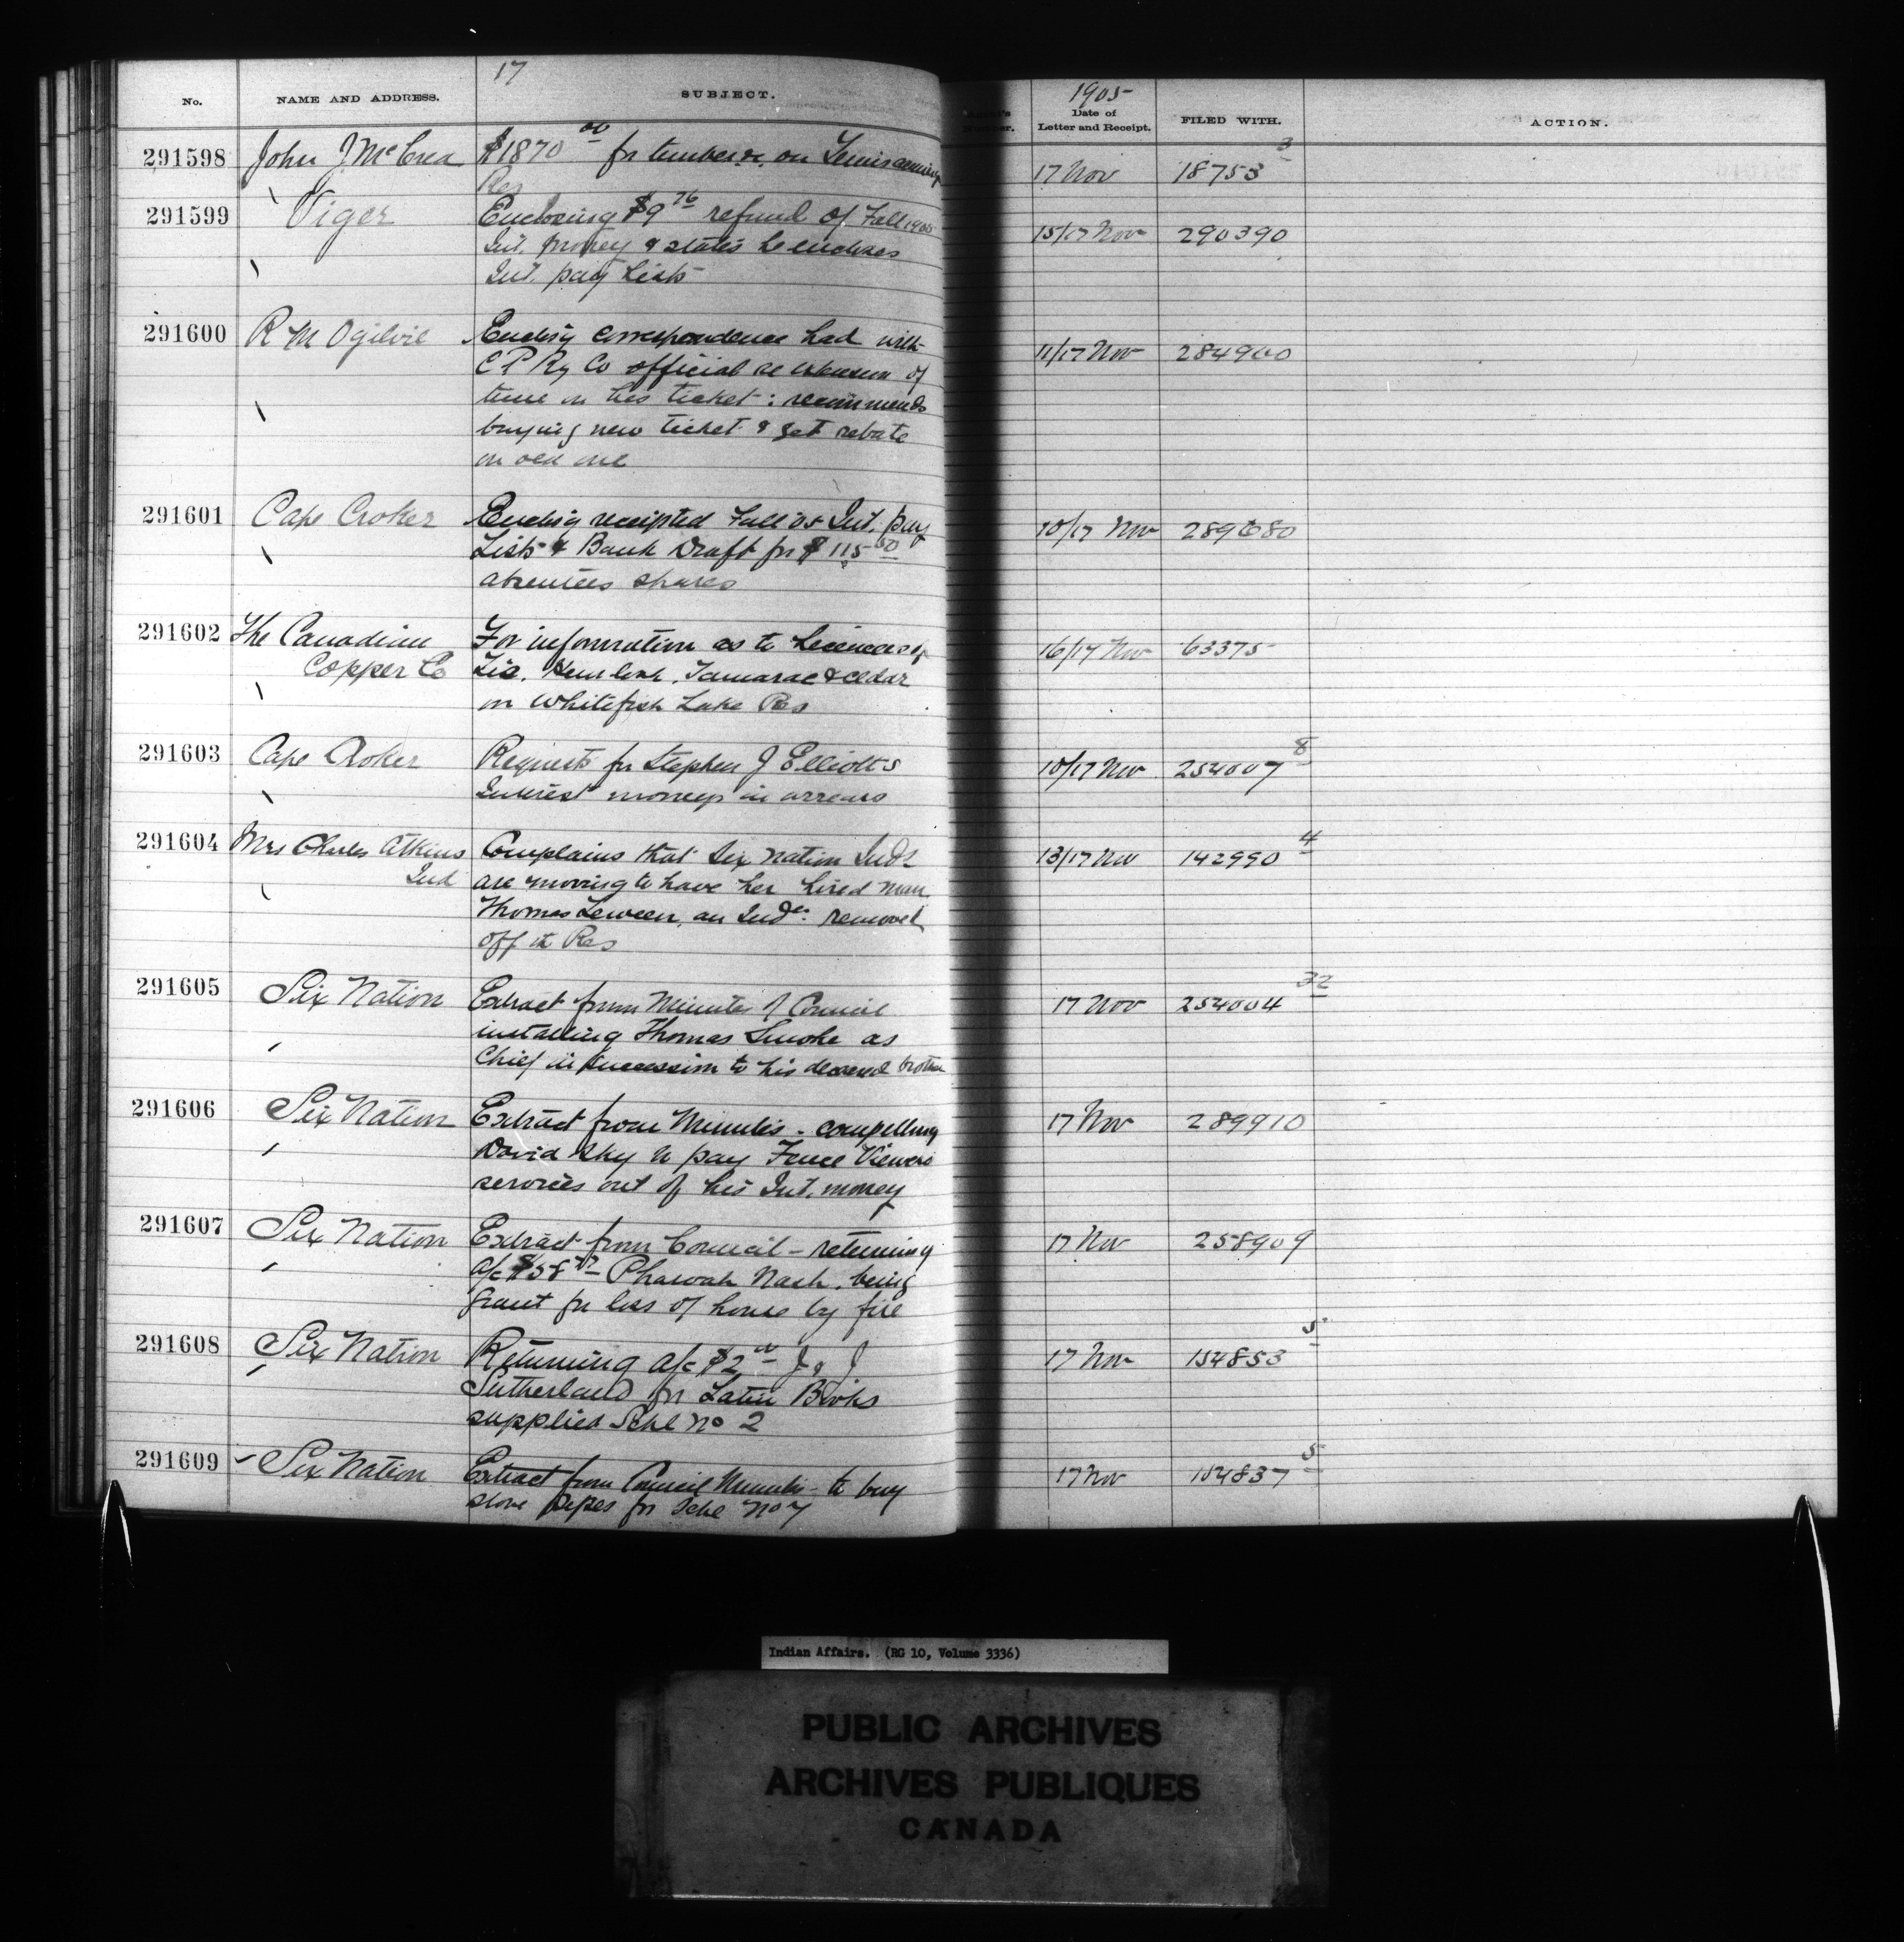 17
1905
No. NAME AND ADDRESS. SUBJECT. Date of Letter and Receipt. FILED WITH. ACTION.
291598 John J McCrea $1870 00 for timber &c. on Temiscaming 17 Nov 18753 3
Res
291599 Viger Enclosing $9 76 refund of Fall 1905 15/17 Nov 290390
Int. money & states he encloses
Int. pay Lists
291600 R M Ogilvie Enclosg correspondence had with 11/17 Nov 284900
C P Ry Co official re extension of
time on his ticket: recommends
buying new ticket & get rebate
on old one
291601 Cape Croker Enclosg receipted Fall 05 Int. pay 10/17 Nov 289680
Lists & Bank Draft for $115 50
absentees shares
291602 The Canadian For information as to Licences of 16/17 Nov 63375
Copper Co Hemlock. Tamarac & cedar
on Whitefish Lake Res
291603 Cape Croker Requests for Stephen J Elliotts 10/17 Nov 254007 8
Interest moneys in arrears
291604 Mrs Charles Atkins Complains that Six Nation Inds 13/17 Nov 142990 4
Ind are moving to have her hired man
Thomas an Indn. removed
off the Res
291605 Six Nation Extract from Minutes of Council 17 Nov 254004 32
installing Thomas Smoke as
Chief in succession to his deceased brother
291606 Six Nation Extract from Minutes - compelling 17 Nov 289910
David Sky to pay Fence Viewers
services out of his Int. money
291607 Six Nation Extract from Council - returning 17 Nov 258909
a/c $58 Pharoah Nash. being
Grant for loss of house by fire
291608 Six Nation Returning a/c $2 00 J & J 17 Nov 154853 5
Sutherland for Latin Books
supplied Schl No 2
291609 Six Nation Extract from Council Minutes - to buy 17 Nov 154837 5
stove pipes for Schl No 7
Indian Affairs. (RG 10, Volume 3336)
PUBLIC ARCHIVES
ARCHIVES PUBLIQUES
CANADA